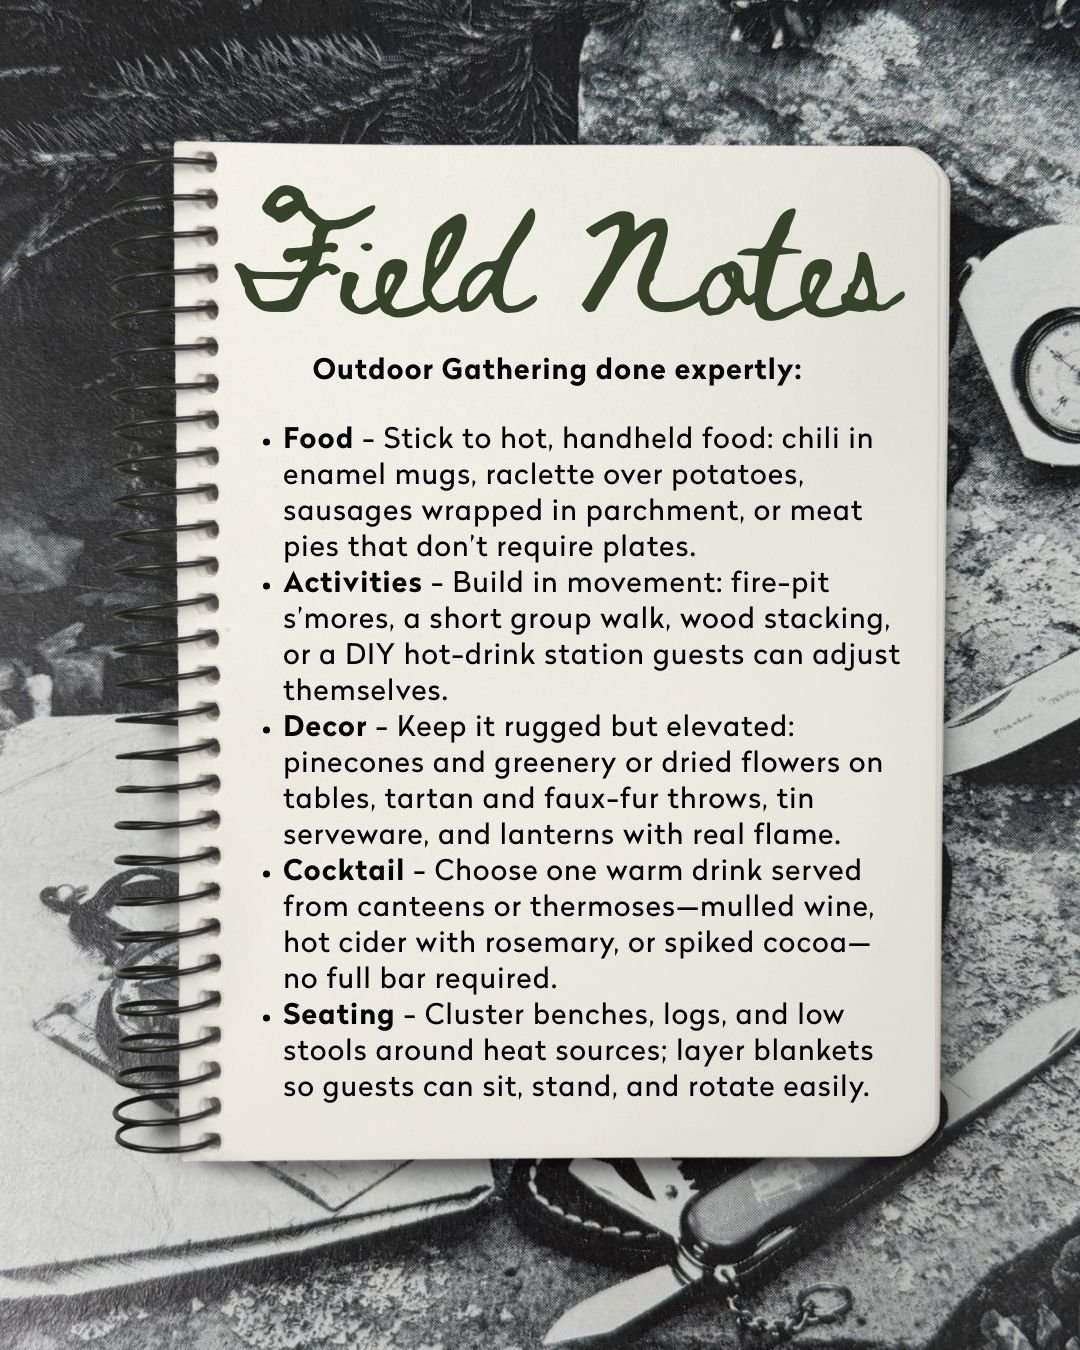 Field Notes
Outdoor Gathering done expertly:
• Food - Stick to hot, handheld food: chili in
enamel mugs, raclette over potatoes,
sausages wrapped in parchment, or meat
pies that don't require plates.
• Activities - Build in movement: fire-pit
s'mores, a short group walk, wood stacking,
or a DIY hot-drink station guests can adjust
themselves.
• Decor - Keep it rugged but elevated:
pinecones and greenery or dried flowers on
tables, tartan and faux-fur throws, tin
serveware, and lanterns with real flame.
• Cocktail - Choose one warm drink served
from canteens or thermoses—mulled wine,
hot cider with rosemary, or spiked cocoa—
no full bar required.
• Seating - Cluster benches, logs, and low
stools around heat sources; layer blankets
so guests can sit, stand, and rotate easily.